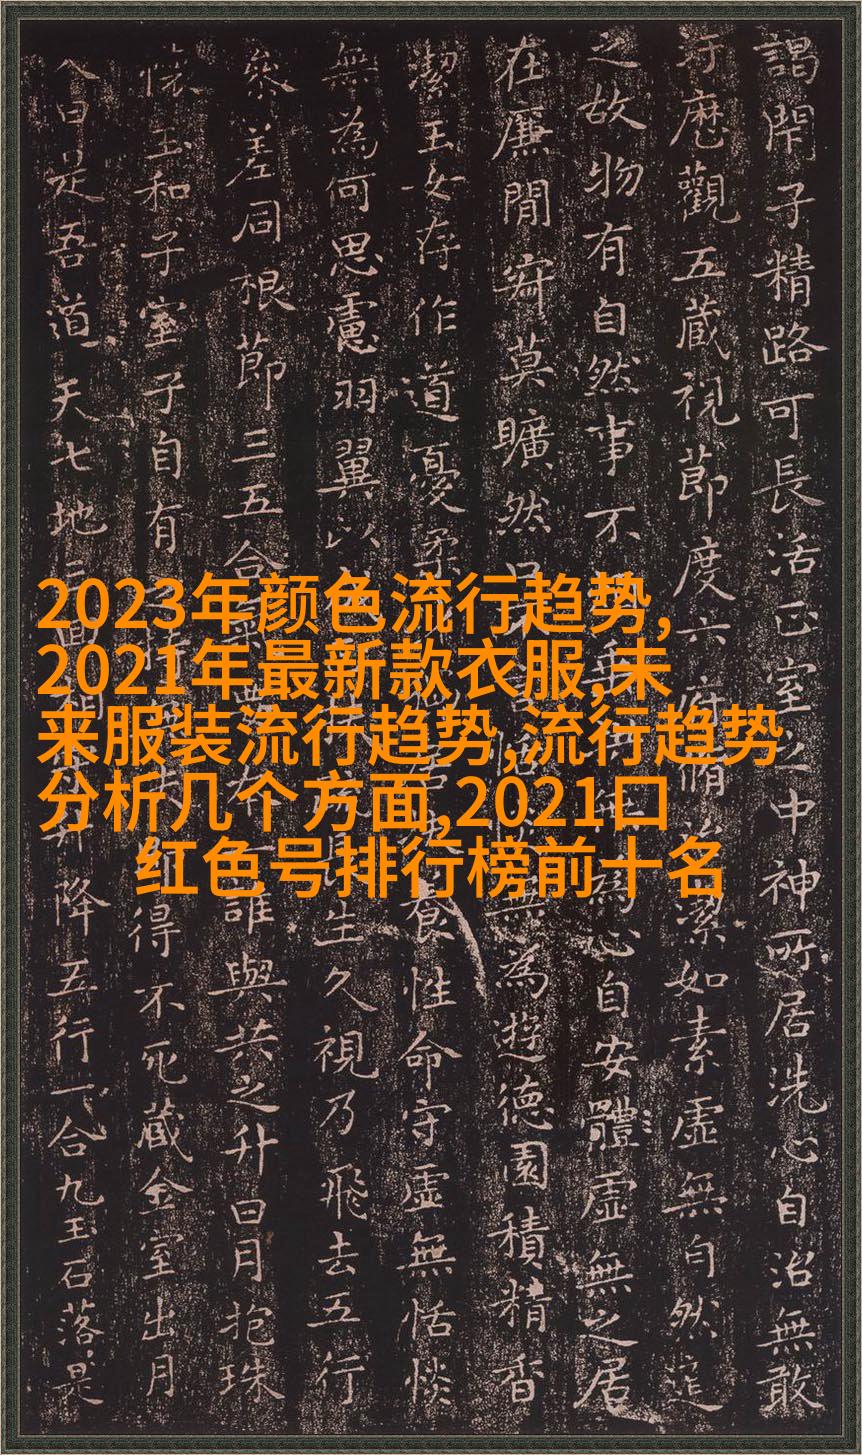 謁閇子精路可長活正室之中神所居洗心自治無敢
汙歷觀五藏視節度六府脩治潔如素虛無自然道
之故物有自然事不垂無為心自安體虛無之居
在廉閒寂莫曠然口不恬無為遊德園積精香
潔玉女存作道憂柔身居養性命守虛無恬惔
無為何思慮羽翼以生久視乃飛去五行
參差同根節三五合氣本一誰與共之升日月抱珠
懷玉和子室子自有持失得不死藏金室出月
入日是吾道天七地三回相升降五行一合九玉石落是
2023年颜色流行趋势,
2021年最新款衣服,未
来服装流行趋势,流行趋势
分析几个方面,2021口
红色号排行榜前十名